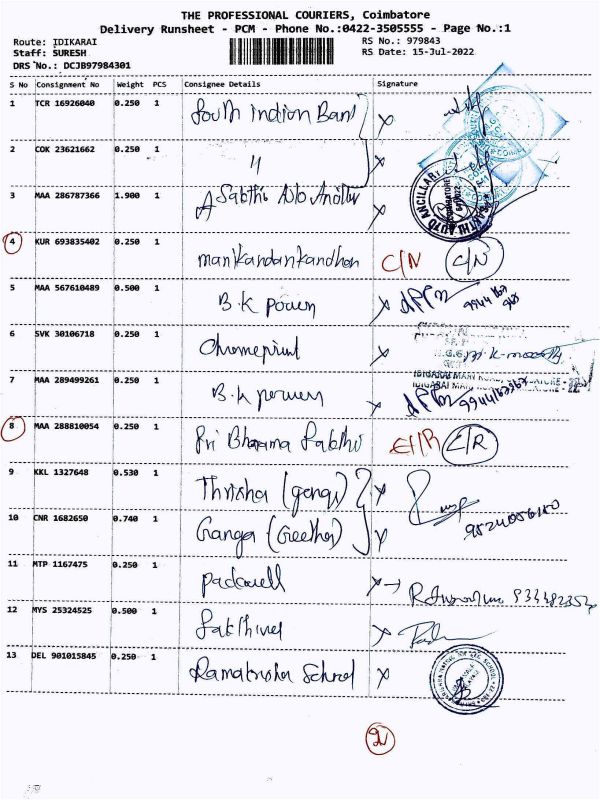 THE PROFESSIONAL COURIERS, Coimbatore
Delivery Runsheet - PCM - Phone No.:0422-3505555 - Page No.:1
Route: IDIKARAI RS No.: 979843
Staff: SURESH RS Date: 15-Jul-2022
DRS No.: DCJB97984301
S No Consignment No Weight PCS Consignee Details Signature
1 TCR 16926040 0.250 1 South Indian Bank x
2 COK 23621662 0.250 1 " x
3 MAA 286787366 1.900 1 x
4 KUR 693835402 0.250 1 manikandankandhan C/N C/N
5 MAA 567610489 0.500 1 B.K power x
6 SVK 30106718 0.250 1 Chromeprint x
7 MAA 289499261 0.250 1 B.K power x 9944167367
8 MAA 288810054 0.250 1 Sri Bhrama Sakthi
9 KKL 1327648 0.530 1 Thrisha (ganga) x
10 CNR 1682650 0.740 1 Ganga (Geetha) x
11 MTP 1167475 0.250 1 x
12 MYS 25324525 0.500 1 Sakthivel x
13 DEL 901015845 0.250 1 Ramakrisha School x